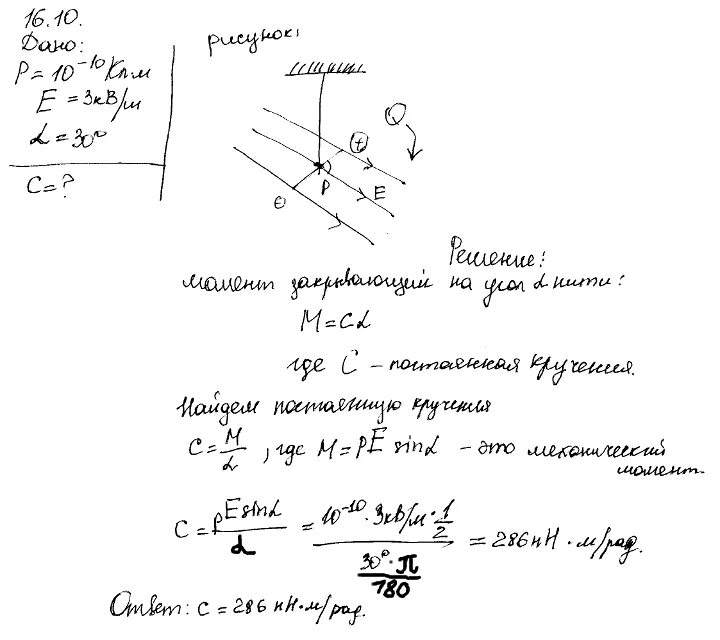 16.10.
Дано:
P = 10⁻¹⁰ Кл·м
E = 3кВ/м
α = 30°
C = ?
рисунок:
+
Q
P
E
Θ
Решение:
момент закрывающий на угол α нити:
M = Cα
где C – постоянная кручения.
Найдем постоянную кручения
C = M/α, где M = PE sinα – это механический
момент
C = pE sinα/α = (10⁻¹⁰ · 3кВ/м · 1/2)/(30°·π/180) = 286 нН·м/рад.
Ответ: C = 286 нН·м/рад.